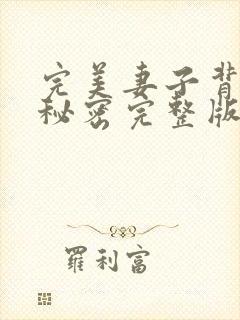 完美妻子背
秘密完整版
羅利富